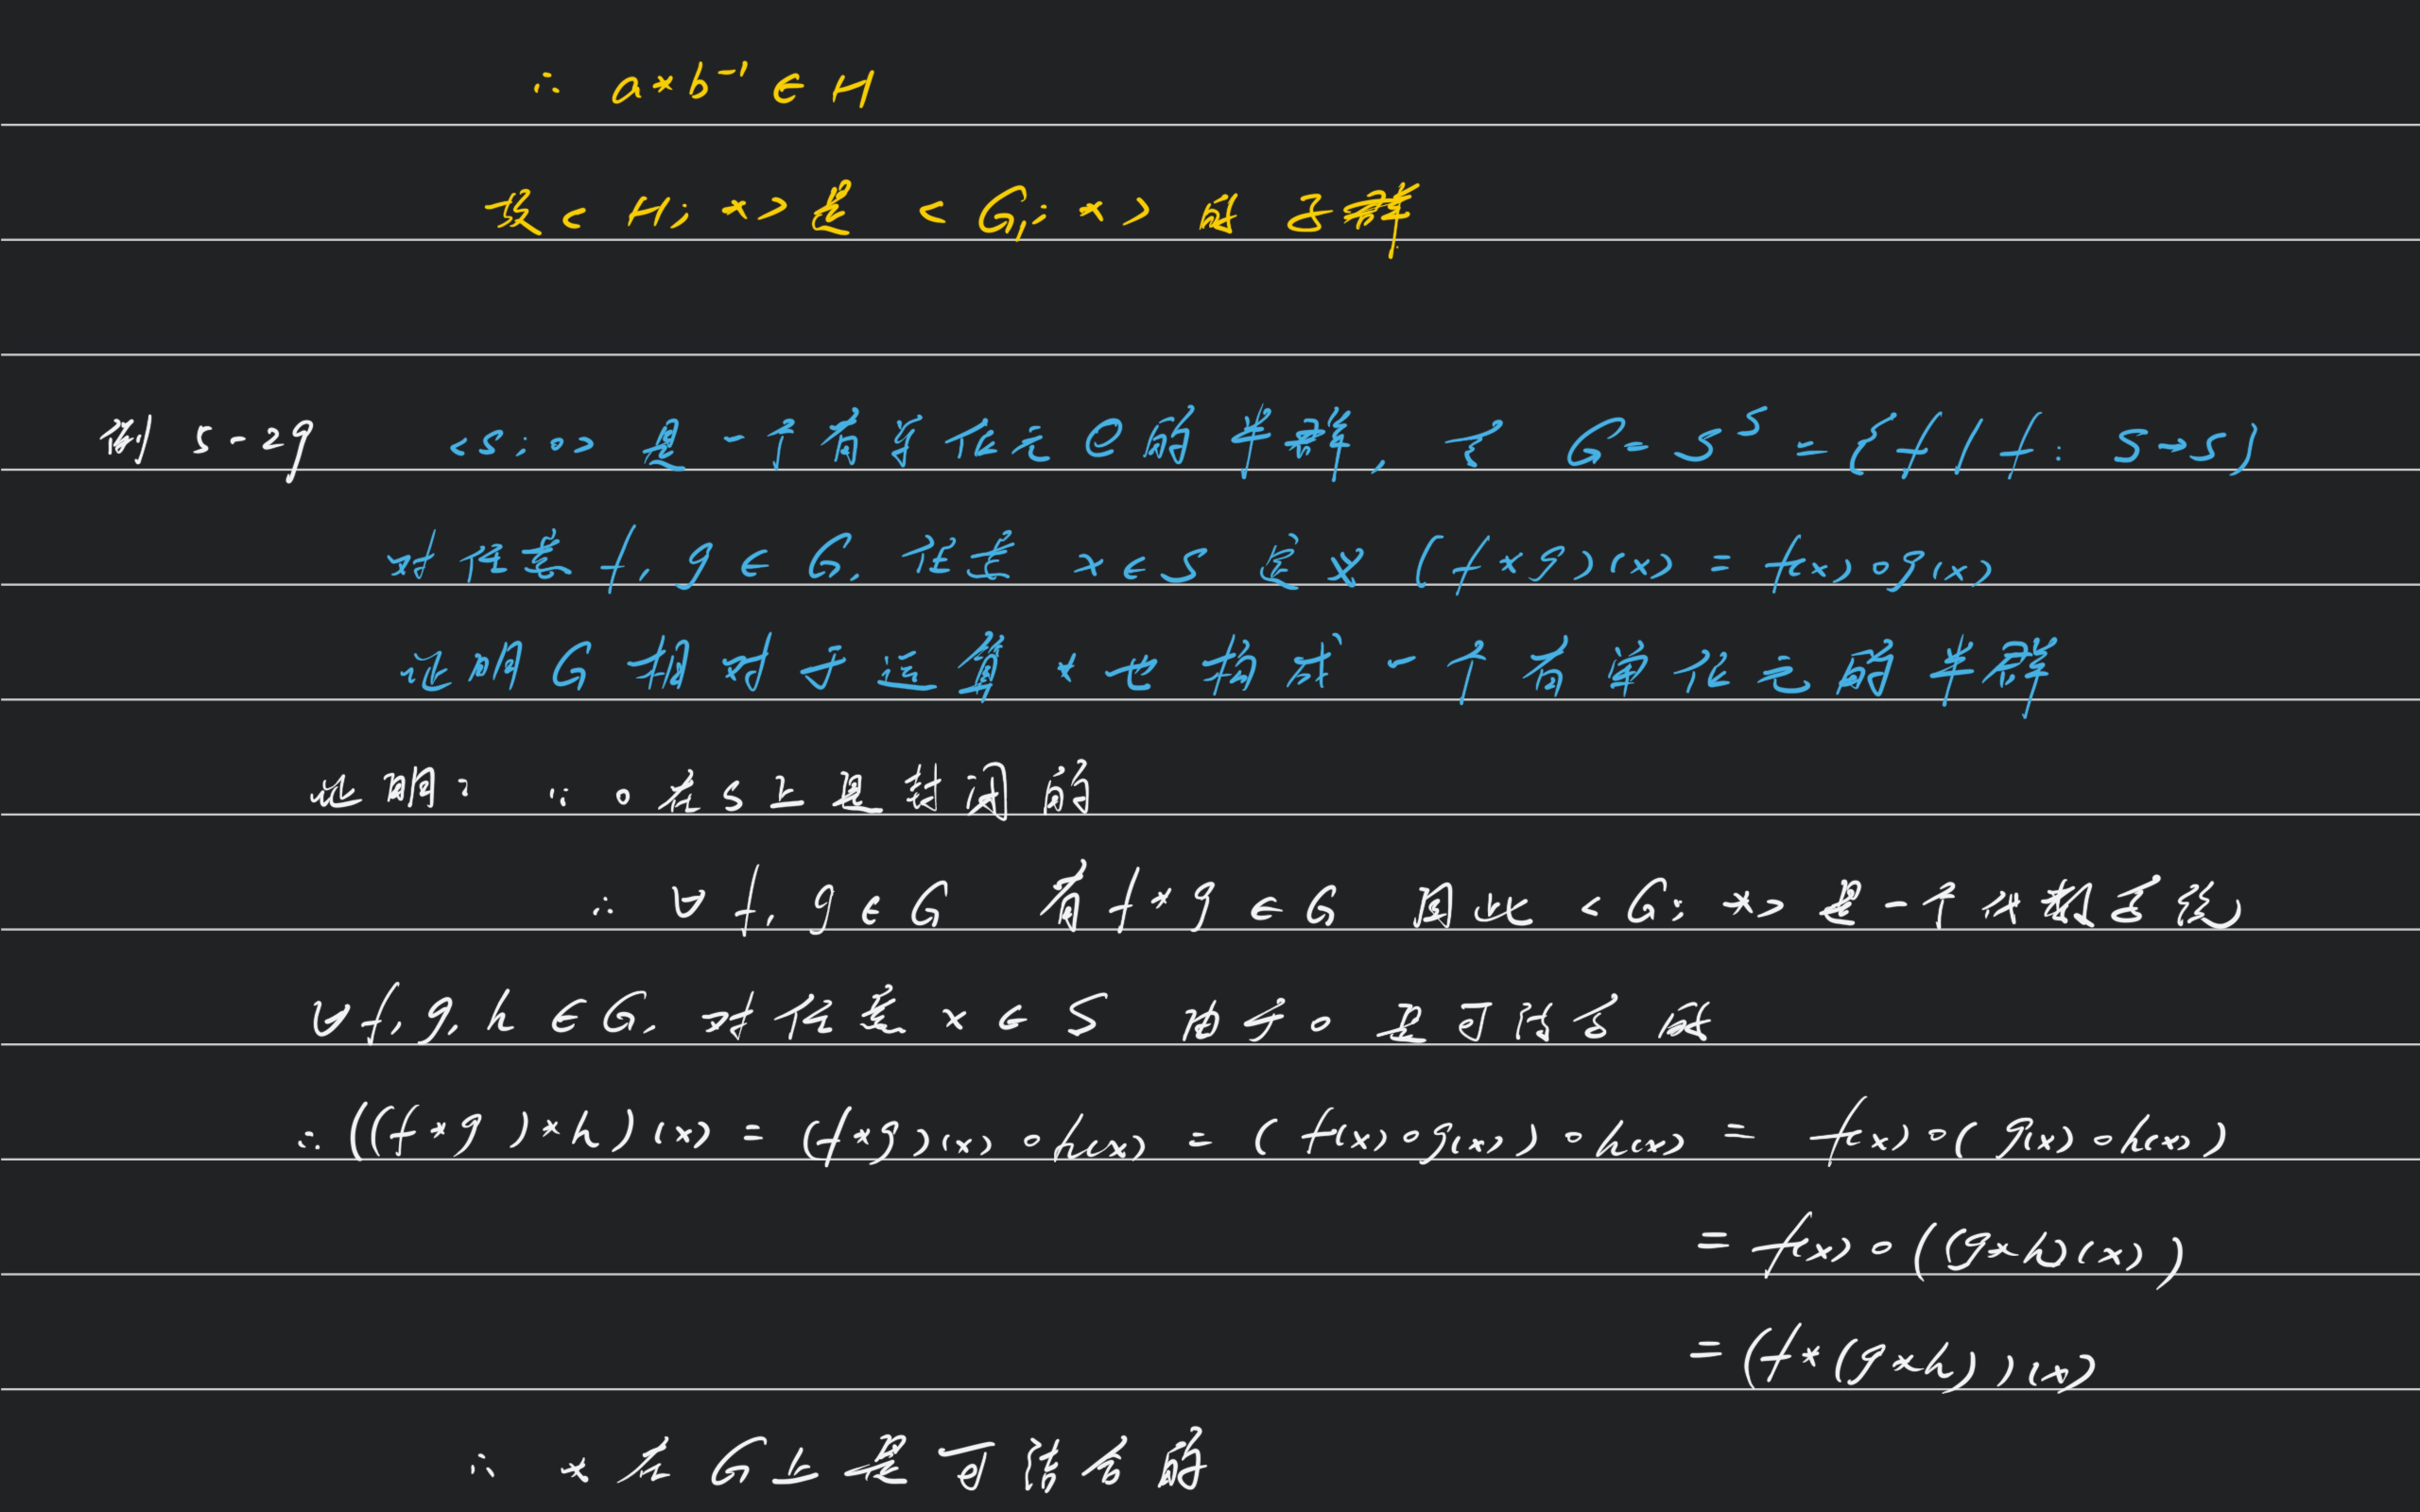 ∴ a*b⁻¹ ∈ H
故<H;*>是<G;*>的子群
例5-29 <S;∘>是一个有单位元e的半群,令 G=S^S={f|f:S→S}
对任意f,g∈G,任意x∈S定义(f*g)(x)=f(x)∘g(x)
证明G相对于运算*也构成一个有单位元的半群
证明:∵∘在S上是封闭的
∴∀f,g∈G 有f*g∈G 因此<G;*>是一个代数系统
∀f,g,h∈G,对任意x∈S 由于∘是可结合的
∴((f*g)*h)(x)=(f*g)(x)∘h(x)=(f(x)∘g(x))∘h(x)=f(x)∘(g(x)∘h(x))
=f(x)∘((g*h)(x))
=(f*(g*h))(x)
∴*在G上是可结合的